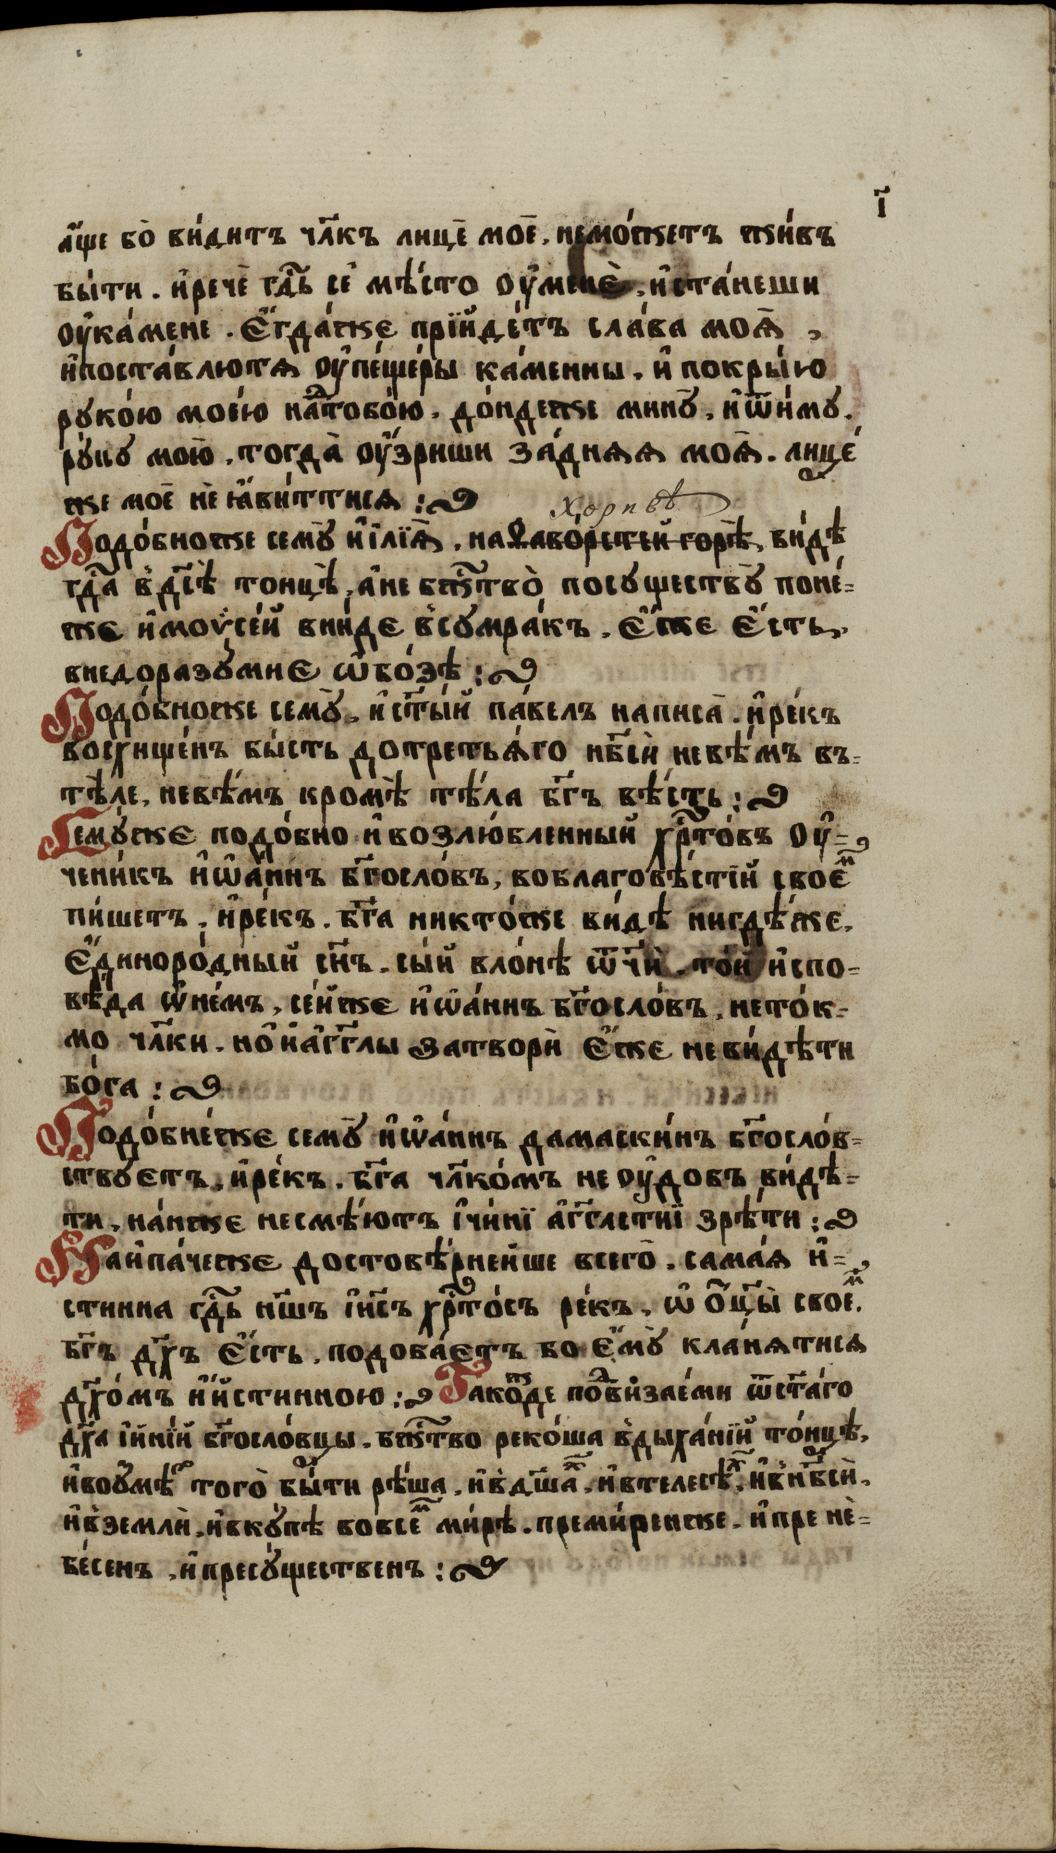 і҃
а҆́ще бо̀ ви́дитъ чл҃къ лицѐ моѐ, немо́жетъ жи́въ
бы́ти. и҆речѐ гдⷭ҇ь сѐ мѣ́сто оу҆менѐ, и҆ста́неши
оу҆ка́мене. Є҆гда́же прїи́детъ сла́ва моѧ̀,
и҆поста́влютѧ оу҆пеще́ры ка́менны, и҆ покры́ю
руко́ю мое́ю наⷣтобо́ю, до́ндеже минꙋ̀, и҆ѿи́му.
рꙋ́ку мою̀, тогда̀ оу҆́зриши за́днѧѧ моѧ̀. лице́
же моѐ не ꙗ҆ви́ттисѧ :
хоривѣ
Подо́бноже семꙋ̀ и҆ їлїѧ̀, наѲаво́рстей горѣ̀, ви́дѣ
гдⷭ҇а в̾дꙋ́сѣ то́нцѣ, а҆не бж҃тво̀ посꙋществꙋ̀ поне́=
же и҆моѷсе́й вни́де в̾сꙋмра́къ, Є҆́же Є҆́сть,
внедоразꙋ́миє ѡ҆бо́зѣ :
Подо́бноже семꙋ̀, и҆ ст҃ы́й па́велъ написа̀. и҆ре́къ
восхище́нъ бы́сть дотретьѧ́го нб҃сѝ не вѣ́мъ въ=
тѣ́ле, невѣ́мъ кромѣ̀ тѣ́ла бг҃ъ вѣ́сть :
Семꙋ́же подо́бно и҆ возлю́бленный хрⷭ҇то́въ оу҆=
чени́къ и҆ѡ҆а́ннъ бг҃осло́въ, во благовѣ́стїй своеⷨ
пи́шетъ, и҆ре́къ. бг҃а никто́же ви́дѣ нигдѣ́же,
Є҆диноро́дный сн҃ъ, сы́й вло́нѣ ѿ҃чїй, то́й и҆спо=
вѣ́да ѡ҆не́мъ, се́йже и҆ѡ҆а́ннъ бг҃осло́въ, не то́к=
мо чл҃ки, но̀ и҆а҆́гг҃лы затворѝ Є҆́же не ви́дѣти
бо́га :
Подо́бнеже семꙋ̀ и҆ѡ҆а́ннъ дамаски́нъ бг҃осло́в=
ствꙋєтъ, и҆ре́къ. бг҃а чл҃ко́мъ не оу҆до́въ ви́дѣ=
ти, на́ньже несмѣ́ютъ і҆чи́ни а҆́гг҃лстїи зрѣ́ти :
Наипа́чеже достовѣ́рнейше всегѡ̀, сама́ѧ и҆́=
стинна гдⷭ҇ь нш҃ъ і҆ис҃ъ хрⷭ҇то́съ ре́къ, ѡ҆ ѻ҆ц҃ы̀ своеⷨ.
бг҃ъ дх҃ъ Є҆́сть, подоба́єтъ бо Є҆мꙋ̀ кла́нѧтисѧ
дх҃о́мъ и҆и́стинною : Такоⷤде поⷣви́заеми ѿст҃а́го
дх҃а і҆и́нїй бг҃осло́вцы, бж҃тво реко́ша в̾дыха́нїй то́нцѣ,
и҆воу҆мѣ̀ того̀ бы́ти рѣ́ша, и҆в̾дш҃аⷯ, и҆втелесѣⷯ, и҆в̾нб҃сѝ,
и҆в̾землѝ, и҆вкꙋ́пѣ во всеⷨ ми́рѣ. преми́ренже, и҆пре нѐ=
бе́сенъ, и҆пресꙋ́щественъ :